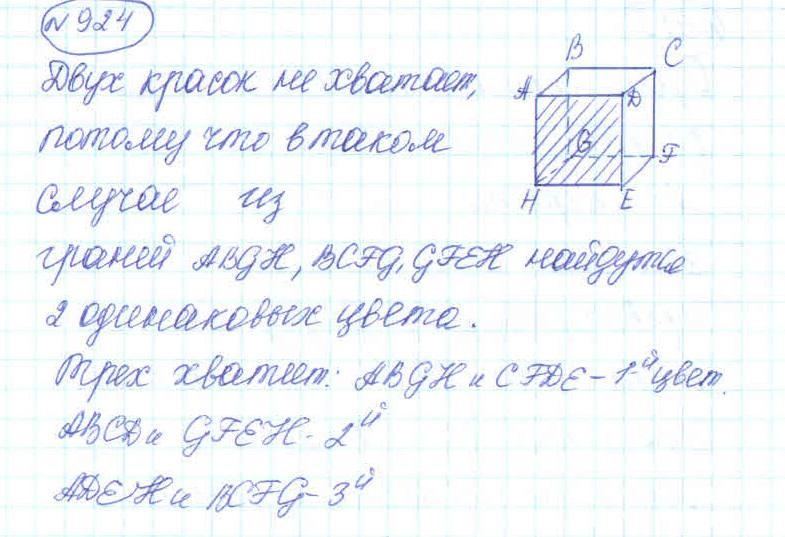 №924
Двух красок не хватает,
потому что в таком
случае из
граней ABGH, BCFG, GFEH найдутся
2 одинаковых цвета.
Трех хватит: ABGH и CFDE - 1й цвет.
ABCD и GFEH - 2й
ADEH и BCFG - 3й
B C
A D
G F
H E